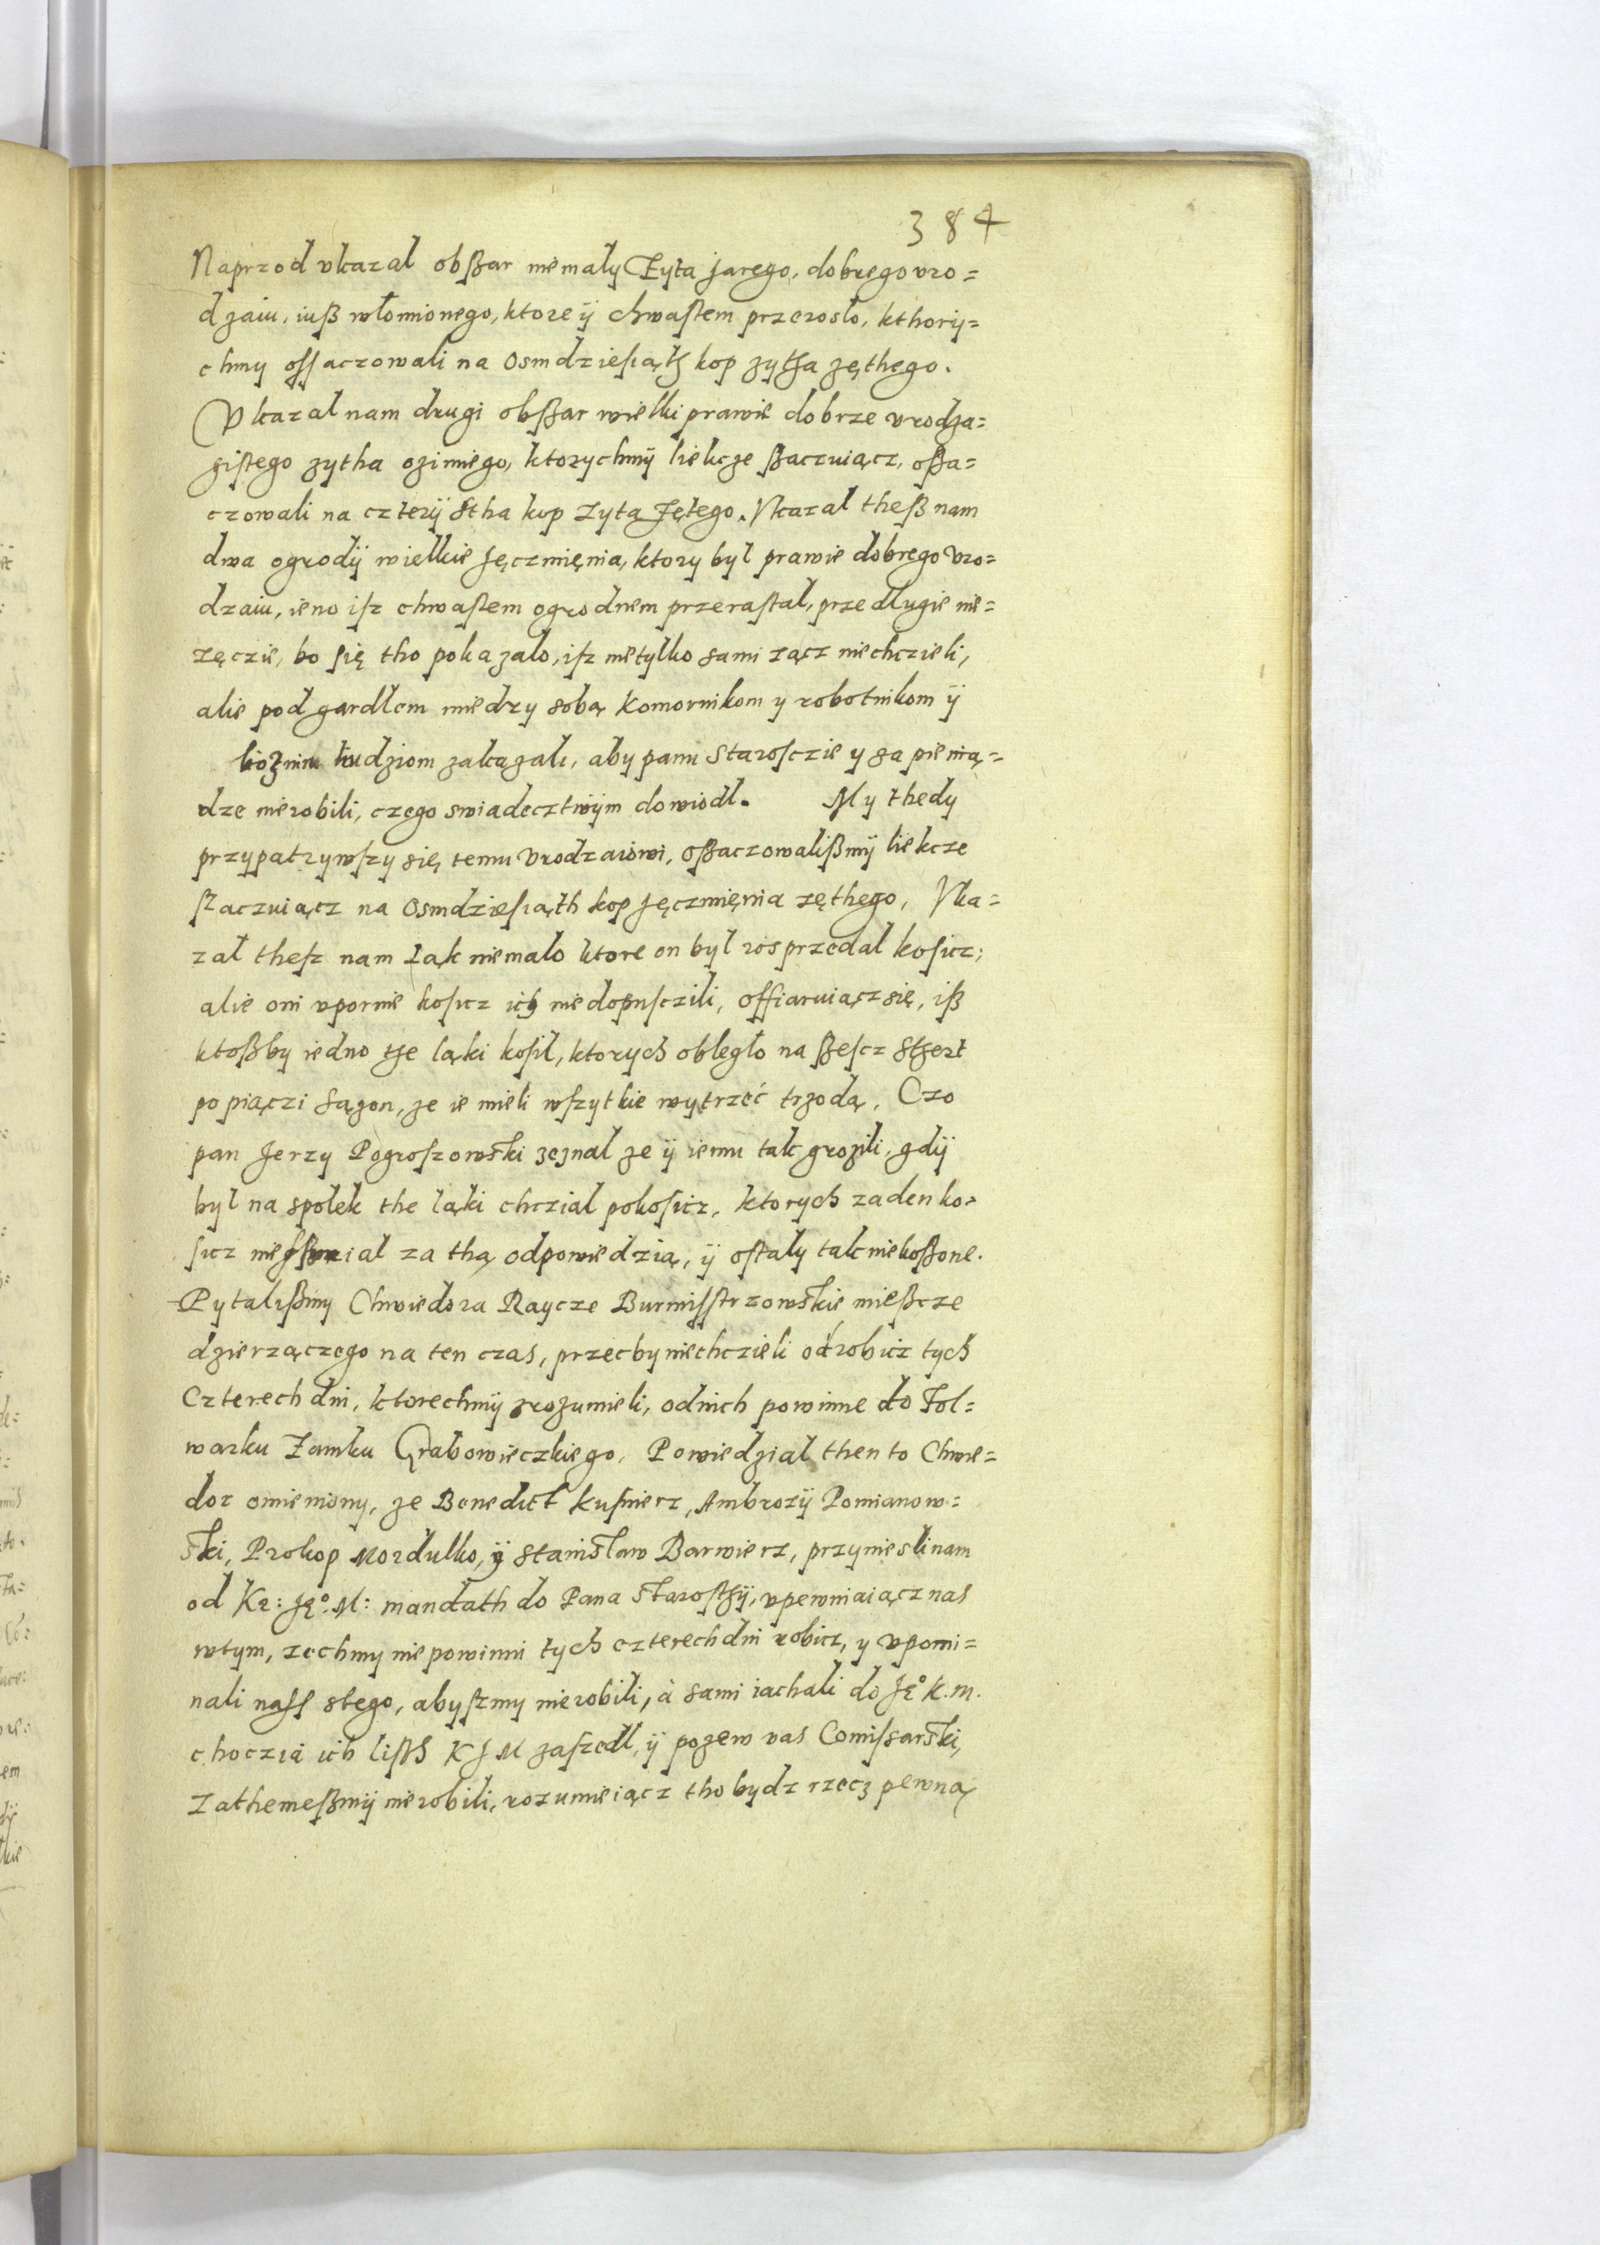 384
Naprzod vkazal obßar niemaly Zyta jarego, dobrego vro=
dzaiu, iuß włomionego, ktore ÿ chwastem przerosło, kthorÿ=
chmy ossaczowali na osmdziesiąth kop zytha zęthego.
Vkazal nam drugi obßar wielki prawie dobrze vrodza=
gistego zytha ozimiego, ktorychmÿ liekcze ßaczuiącz, oßa=
czowali na czterÿ stha kop zyta zętego. Vkazal theß nam
dwa ogrodÿ wielkie Jęczmięnia, ktory byl prawie dobrego vro=
dzaiu, ieno isz chwastem ogrodnem przerastal, prze długie nie=
zęczie, bo się tho pokazalo, isz nietylko sami zącz niechczieli,
alie pod gardłem miedzy sobą Komornikom y robotnikom ÿ
liożnim liudziom zakazali, aby panu Starosczie y za pienią=
dze nierobili, czego swiadecztwÿm dowiodl. My thedy
przypatrzywszy się temu vrodzaiowi, oßaczowalißmÿ liekcze
szaczuiącz na osmdziesiąth kop Jęczmięnia zęthego, Vka=
zal thesz nam Łąk niemalo ktore on byl rosprzedal kosicz;
alie oni vpornie kosicz ich niedopusczili, offiaruiącz się, iß
ktoßby iedno the ląki kosil, ktorych obległo na ßescz sthert
po piączi sązon, ze ie mieli wszytkie wytrzeć trzodą. Czo
pan Jerzy Pogroszowski zeznal ze ÿ iemu tak grozili, gdÿ
byl na spolek the ląki chczial pokosicz, ktorych zaden ko=
sicz nie śmial za thą odpowiedzią, ÿ ostaly tak niekoßone.
Pytalißmy Chwiedora Raycze Burmisstrzowskie mießcze
dzierzączego na ten czas, przecby niechczieli odrobicz tych
Czterech dni, ktorechmÿ zrozumieli, od nich powinne do Fol=
warku Zamku Grabowieczkiego, Powiedzial then to Chwie=
dor omieniony, ze Benedict Kusnierz, Ambrozÿ Pomianow=
ski, Prokop Mordulko, ÿ Stanisław Barwierz, przyniesli nam
od Kr: Jęº. M: mandath do Pana Starosthÿ, vpewniaiącz nas
wtym, zechmy niepowinni tych czterech dni robicz, y vpomi=
nali nass stego, abyszmy nierobili, à sami iachali do Jęº K. M.
choczia ich listh K J M zaszedl, ÿ pozew vas Comissarski,
Zathemeßmÿ nierobili, rozumieiącz tho bydz rzecz pewną